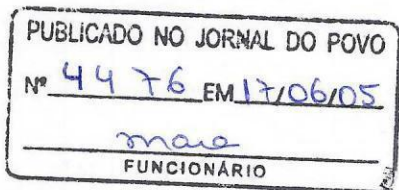 PUBLICADO NO JORNAL DO POVO
Nº 4476 EM 17/06/05
FUNCIONÁRIO